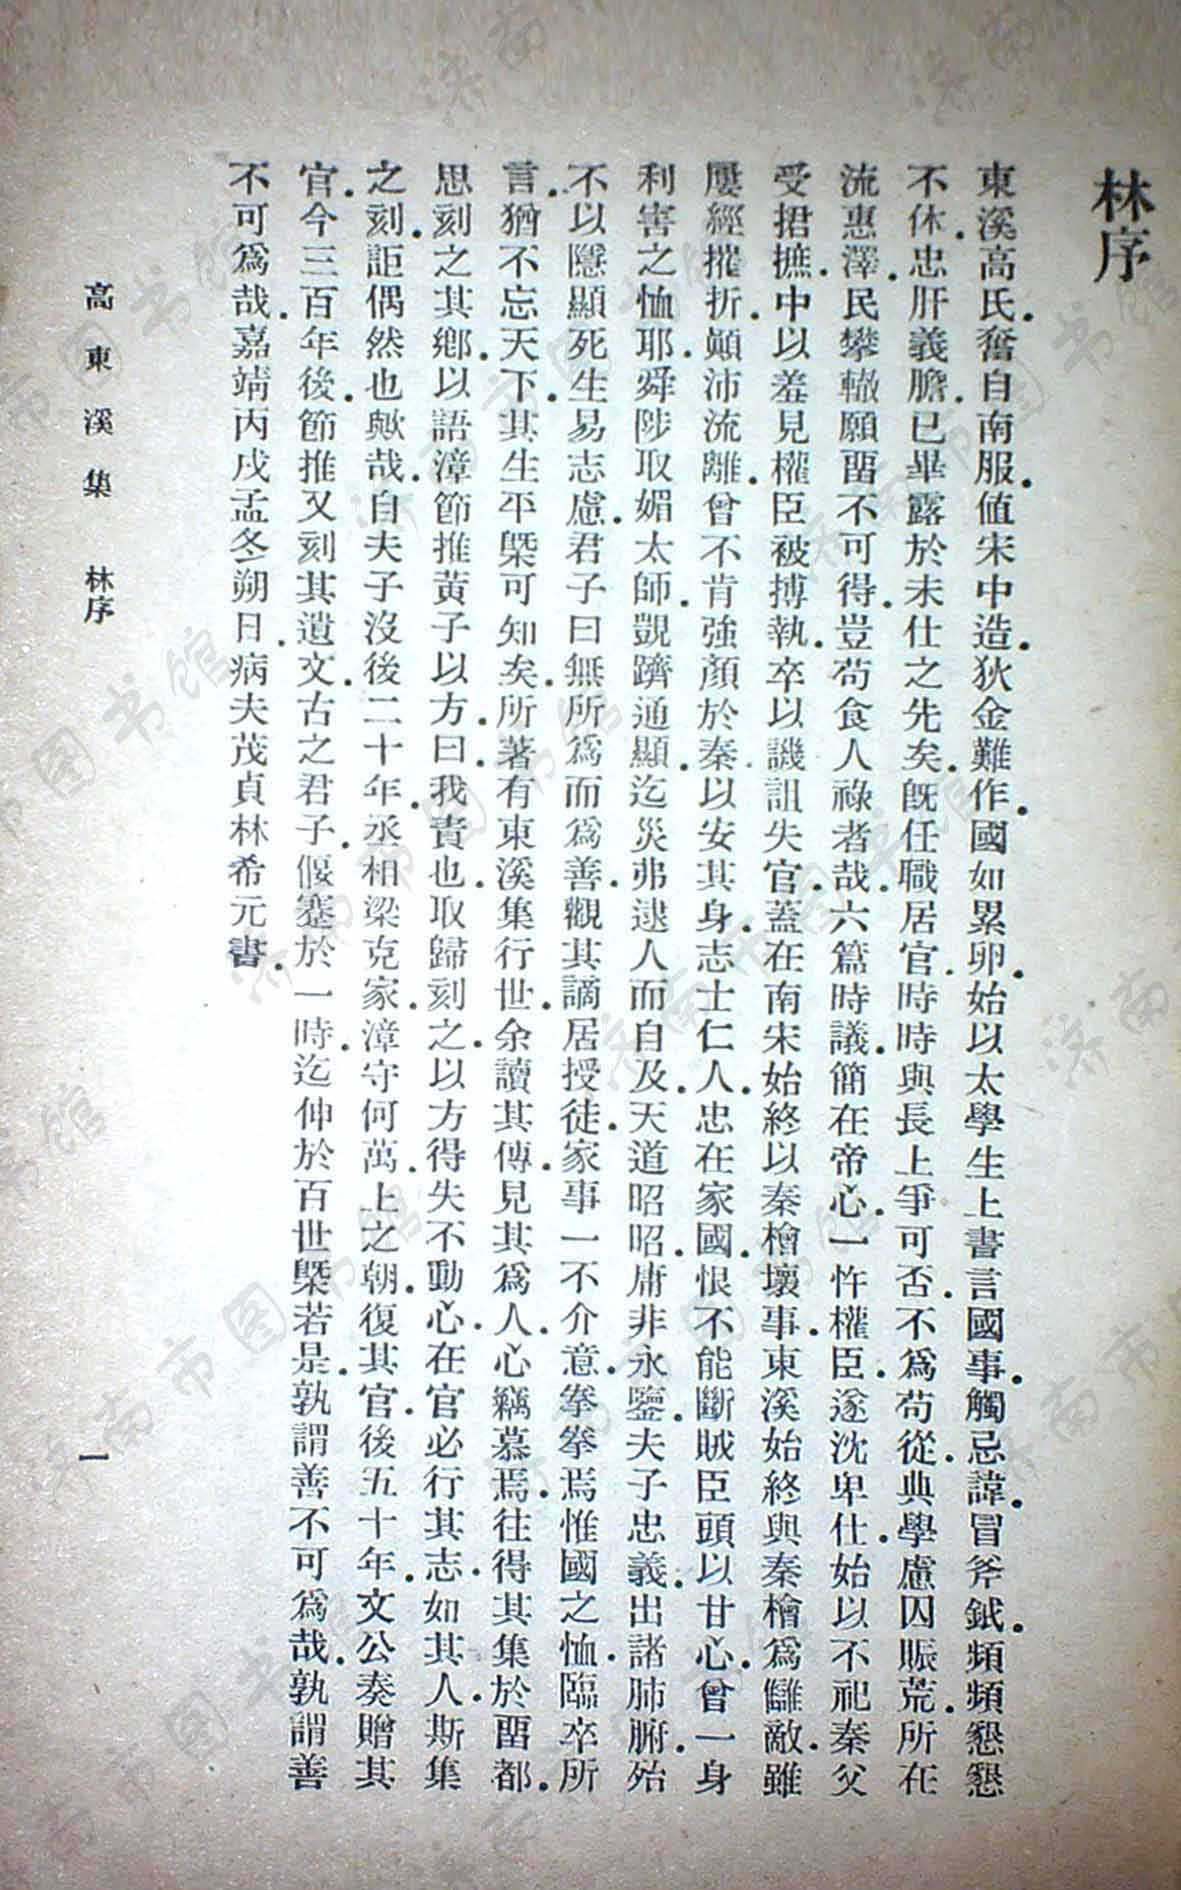 林序
東溪高氏.奮自南服.值宋中造.狄金難作.國如累卵.始以太學生上書言國事.觸忌諱.冒斧鉞.頻頻懇懇
不休.忠肝義膽.已畢露於未仕之先矣.既任職居官.時時與長上爭可否.不爲苟從.典學慮囚賑荒.所在
流惠澤.民攀轍願畱不可得.豈苟食人祿者哉.六篇時議.簡在帝心.一忤權臣.遂沈卑仕.始以不祀秦父
受捃摭.中以羞見權臣被搏執.卒以譏詛失官.蓋在南宋始終以秦檜壞事.東溪始終與秦檜爲讎敵.雖
屢經摧折.顛沛流離.曾不肯強顏於秦.以安其身.志士仁人.忠在家國.恨不能斷賊臣頭以甘心.曾一身
利害之恤耶.舜陟取媚太師.覬躋通顯.迄災弗逮人而自及.天道昭昭.庸非永鑒.夫子忠義.出諸肺腑.殆
不以隱顯死生易志慮.君子曰無所爲而爲善.觀其謫居授徒.家事一不介意.拳拳焉惟國之恤.臨卒所
言.猶不忘天下.其生平槩可知矣.所著有東溪集行世.余讀其傳.見其爲人.心竊慕焉.往得其集於畱都.
思刻之其鄉.以語漳節推黃子以方.曰.我責也.取歸刻之.以方得失不動心.在官必行其志.如其人.斯集
之刻.詎偶然也歟哉.自夫子沒後二十年.丞相梁克家.漳守何萬.上之朝.復其官.後五十年.文公奏贈其
官.今三百年後.節推又刻其遺文.古之君子.偃蹇於一時.迄伸於百世.槩若是.孰謂善不可爲哉.孰謂善
不可爲哉.嘉靖丙戌孟冬朔日.病夫茂貞林希元書.
高東溪集 林序 一
济南市图书馆